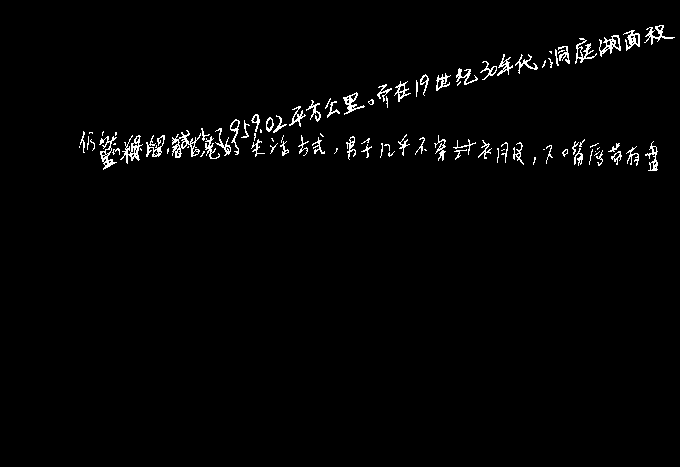 959.02平方公里。而在19世纪30年代,洞庭湖面积
仍的生活方式,男子几乎不穿衣服,下嘴唇带有盘